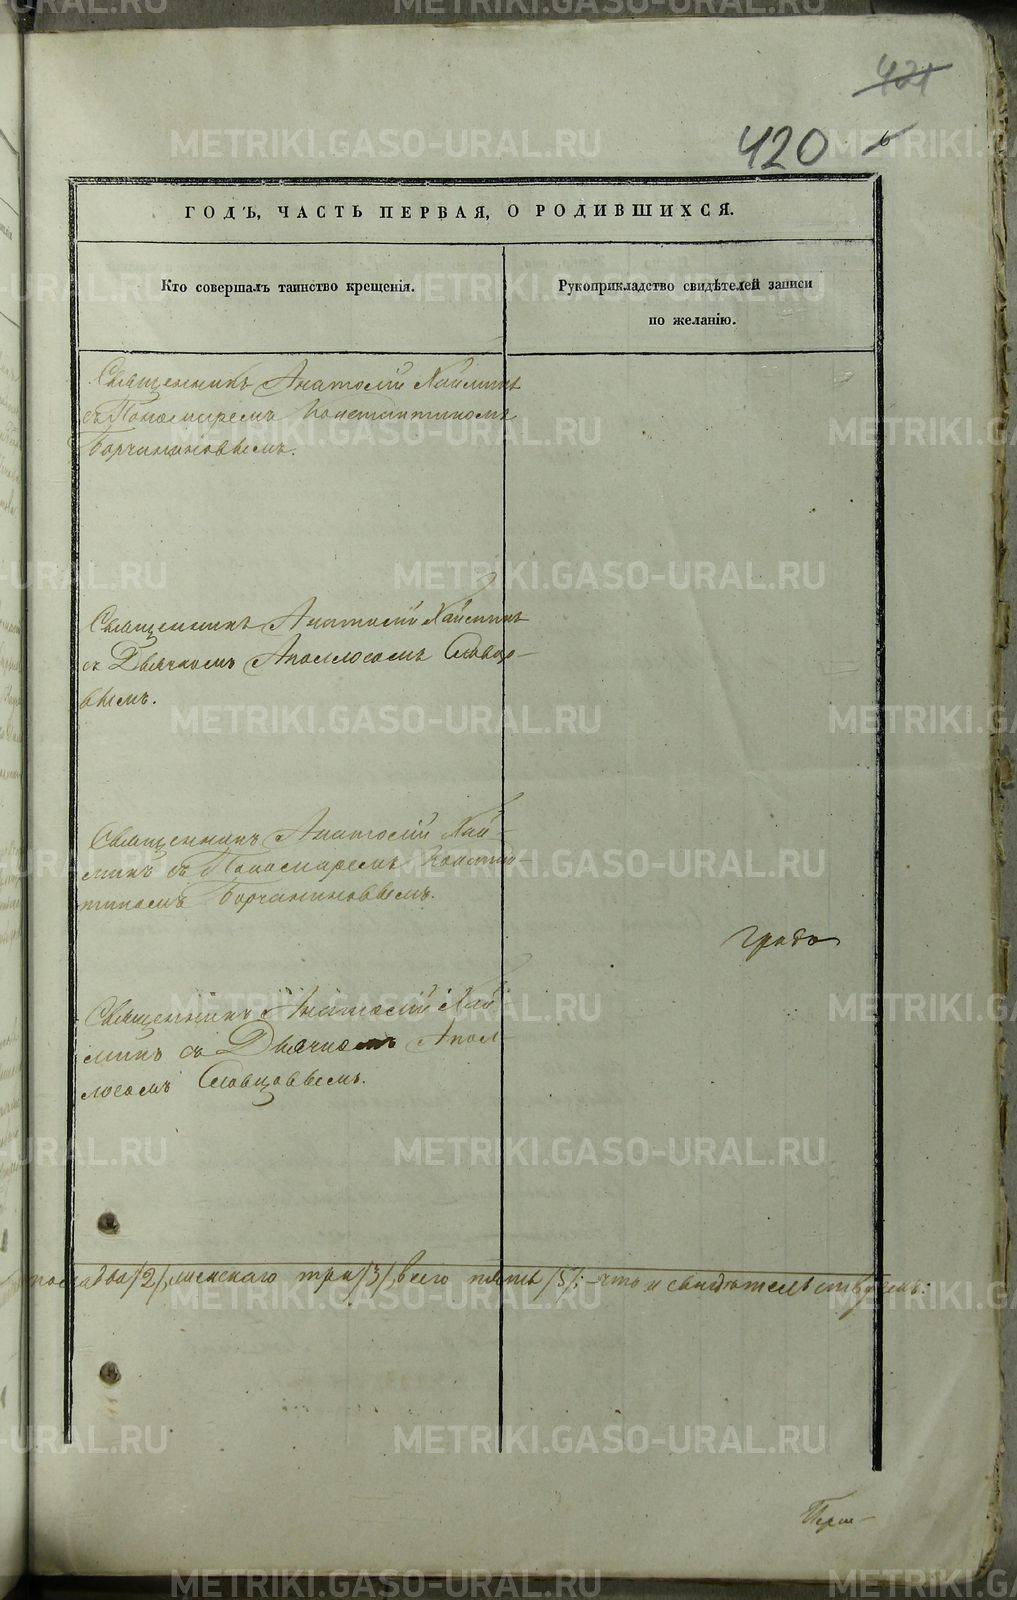 421
420
6
ГОДЪ, ЧАСТЬ ПЕРВАЯ, О РОДИВШИХСЯ.
Кто совершалъ таинство крещенія.
Рукоприкладство свидѣтелей записи
по желанію.
Священникъ Анатолій Хаймин
съ Пономаремъ Константиномъ
Борчаниновымъ.
Священникъ Анатолій Хайминъ
съ Дьячкомъ Аполлосомъ Словцо-
вымъ.
Священникъ Анатолій Хай-
минъ съ Пономаремъ Констан-
тиномъ Борчаниновымъ.
Священникъ Анатолій Хай-
минъ съ Дьячкомъ Апол-
лосомъ Словцовымъ.
пола два /2/, женскаго три /3/, всего пять /5/; что и свидѣтельствуемъ:
METRIKI.GASO-URAL.RU